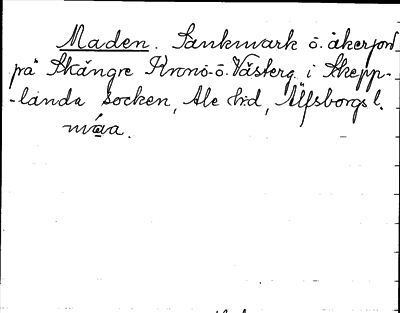 Maden. Sankmark o. åkerjord
på Skångre Krono- o. Västerg. i Skepp-
-landa socken, Ale h:d, Älfsborgs l.
máa.